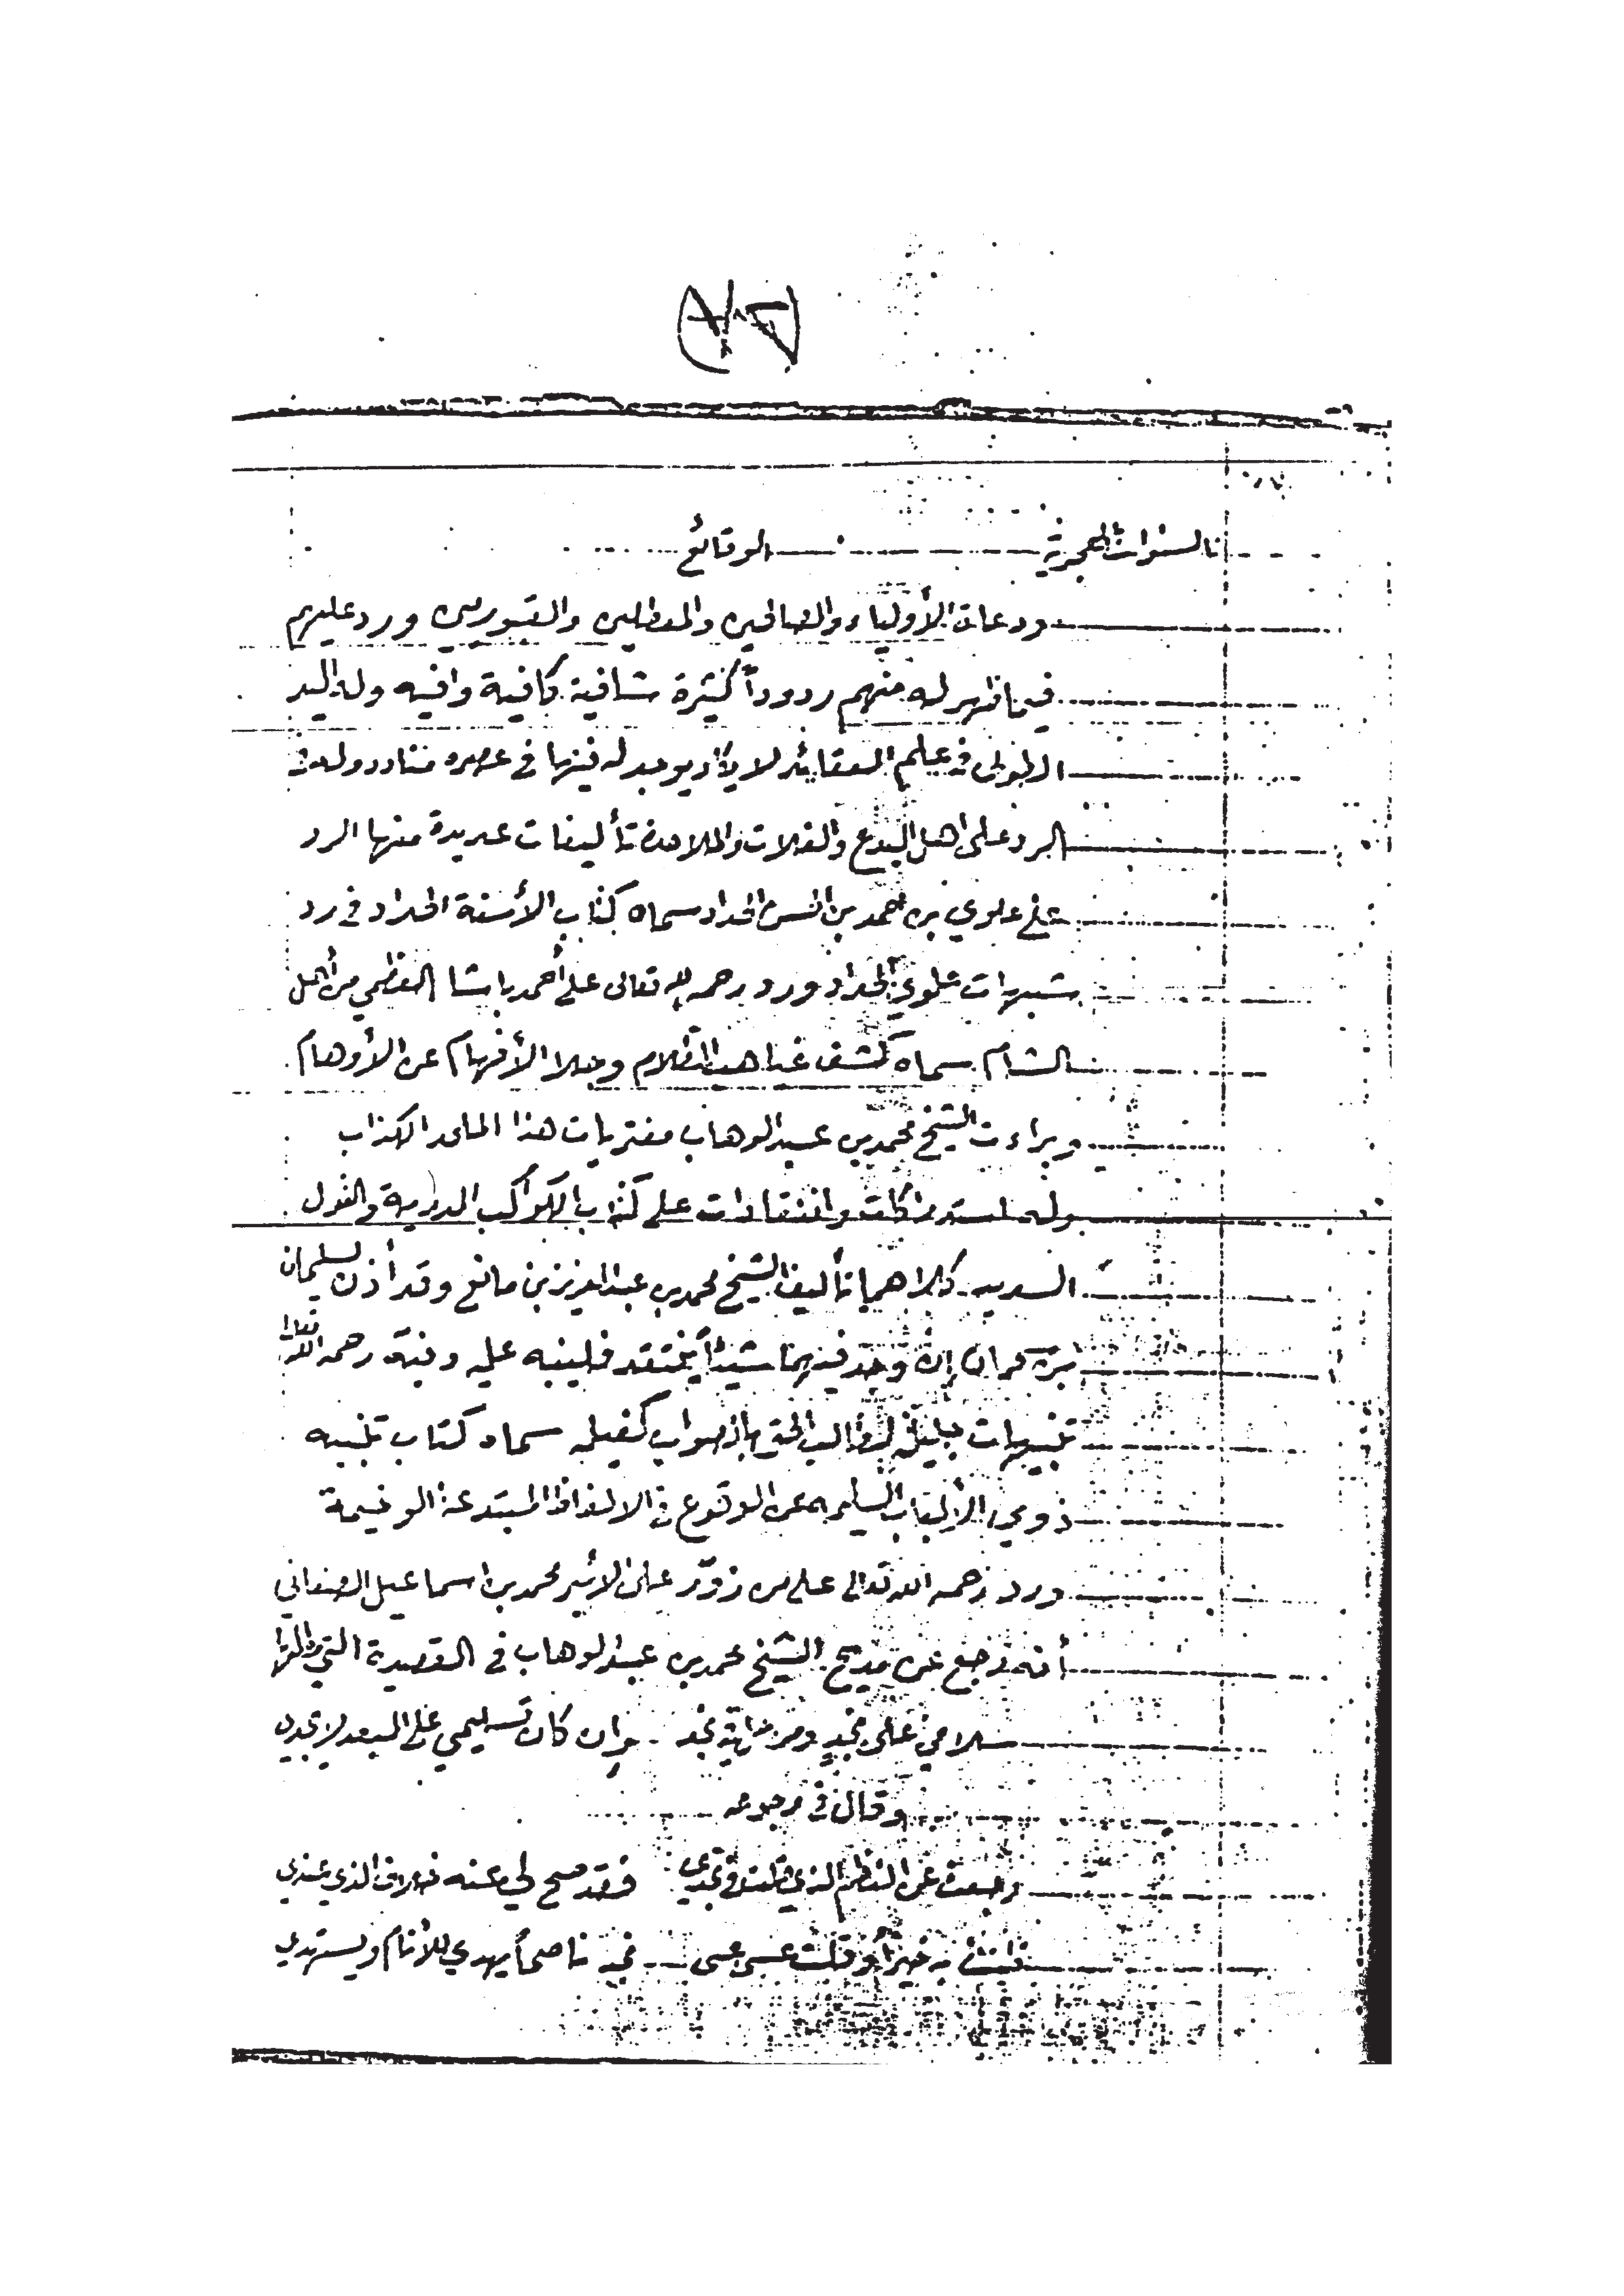 السنوات الهجرية الوقائع
ودعات الأولياء والصالحين والمعطلين والقبوريين ورد عليهم
فيما ظهر له منهم ردوداً كثيرة شافية كافية وافيه وله اليد
الطولى في علم العقائد لا يكاد يوجد له فيها في عصره مضادد وله في
الرد على اهل البدع والغلات والملاحدة تأليفات عديدة منها الرد
على علوي بن احمد بن الحسن الحداد سماه كتاب الأسنة الحداد في رد
شبهات علوي الحداد ورد رحمه الله تعالى على أحمد باشا العظمي من أهل
الشام سماه كشف غياهب الظلام وجلا الأفهام عن الأوهام
وبراءت الشيخ محمد بن عبد الوهاب مفتريات هذا الملحد الكذاب
وله استدراكات وانتقادات على كتاب الكواكب الدرية والقول
السديد كلاهما تأليف الشيخ محمد بن عبد العزيز بن مانع وقد أذن لسليمان
بن سحمان إن وجد فيهما شيئاً ينتقد فلينبه عليه ونبه رحمه الله تعالى
تنبيهات جليلة لطالب الحق بالصواب كفيله سماه كتاب تنبيه
ذوي الألباب السليمه عن الوقوع في الالفاظ المبتدعة الوخيمة
ورد رحمه الله تعالى على من زوّر على الأمير محمد بن اسماعيل الصنعاني
أنه رجع عن مديح الشيخ محمد بن عبد الوهاب في القصيدة التي
سلامي على نجدٍ ومن حل في نجد وإن كان تسليمي على البعد لا يجدي
وقال في رجوعه
رجعت عن النظم الذي قلت في نجدي فقد صح لي عنه خلاف الذي عندي
ظننت به خيراً وقلت عسى عسى نجد ناصحاً يهدي للأنام ويستهدي